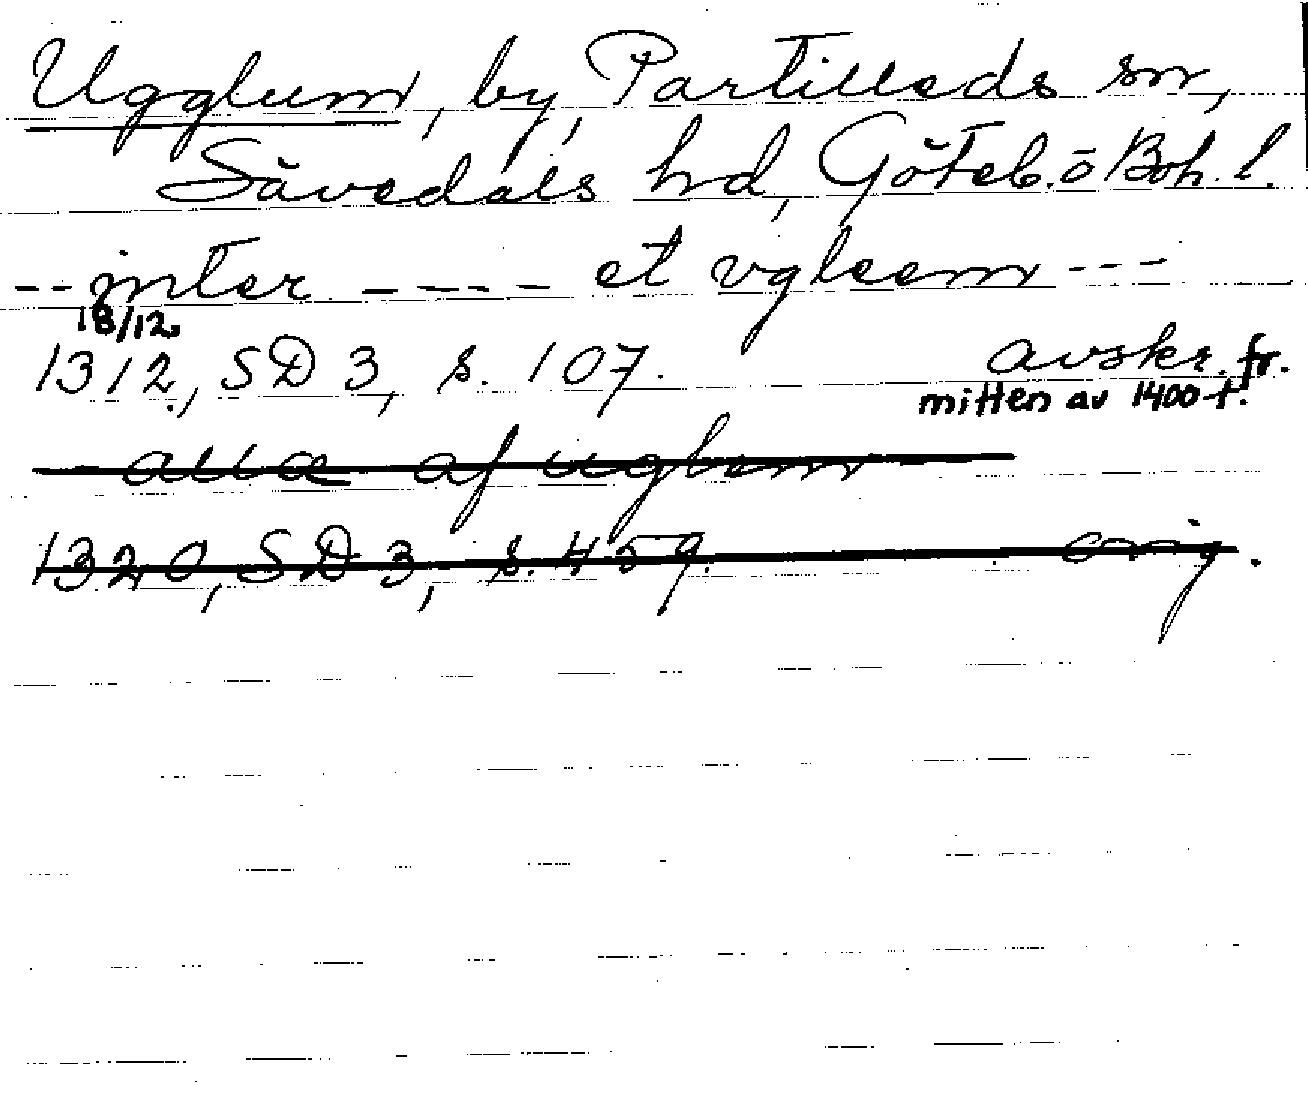 Ugglum, by, Partilleds sn,
Sävedals hd, Göteb. o Boh. l.
-- inter ---- et vgleem ---
18/12.
1312, SD 3, s. 107. avskr. fr.
mitten av 1400-t.
alla af uglem
1320, SD 3, s. 459. orig.